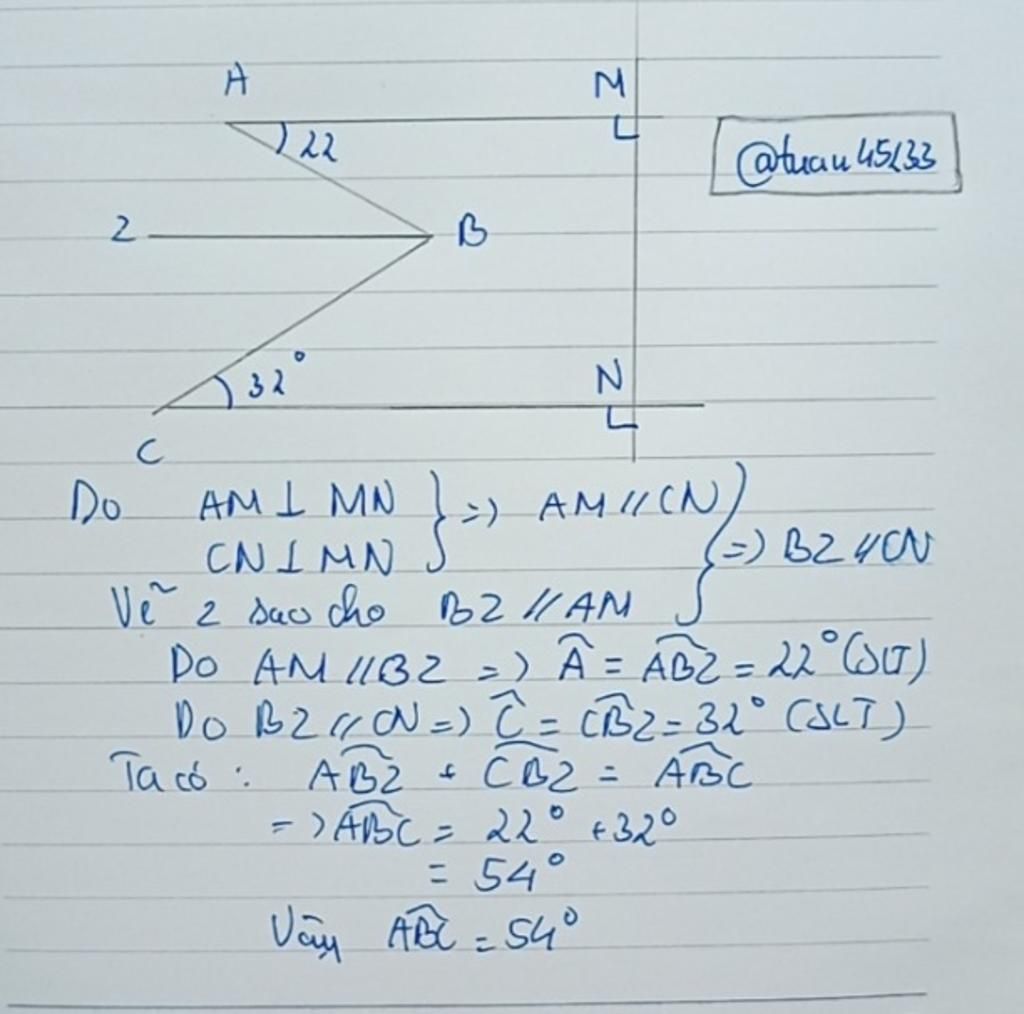 A
M
22
@tuan45233
2
B
32°
N
C
Do AM ⊥ MN } => AM // CN
CN ⊥ MN
} => BZ // CN
Vẽ z sao cho BZ // AM
Do AM // BZ => Â = ABZ = 22° (SLT)
Do BZ // CN => Ĉ = CBZ = 32° (SLT)
Ta có : ABZ + CBZ = ABC
=> ABC = 22° + 32°
= 54°
Vậy ABC = 54°